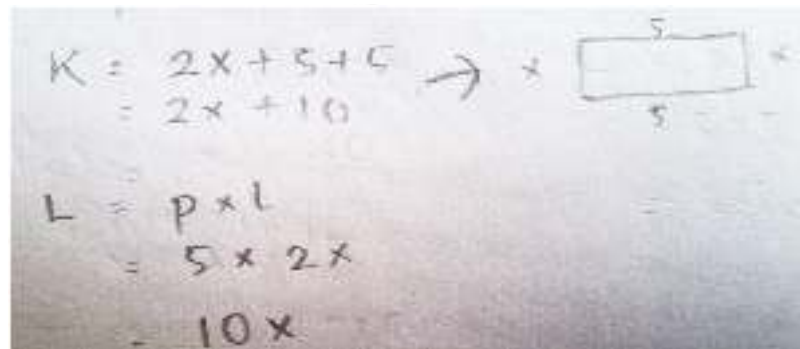 K = 2x + 5 + 5 → x 5 x
= 2x + 10 5
L = p x l
= 5 x 2x
= 10x